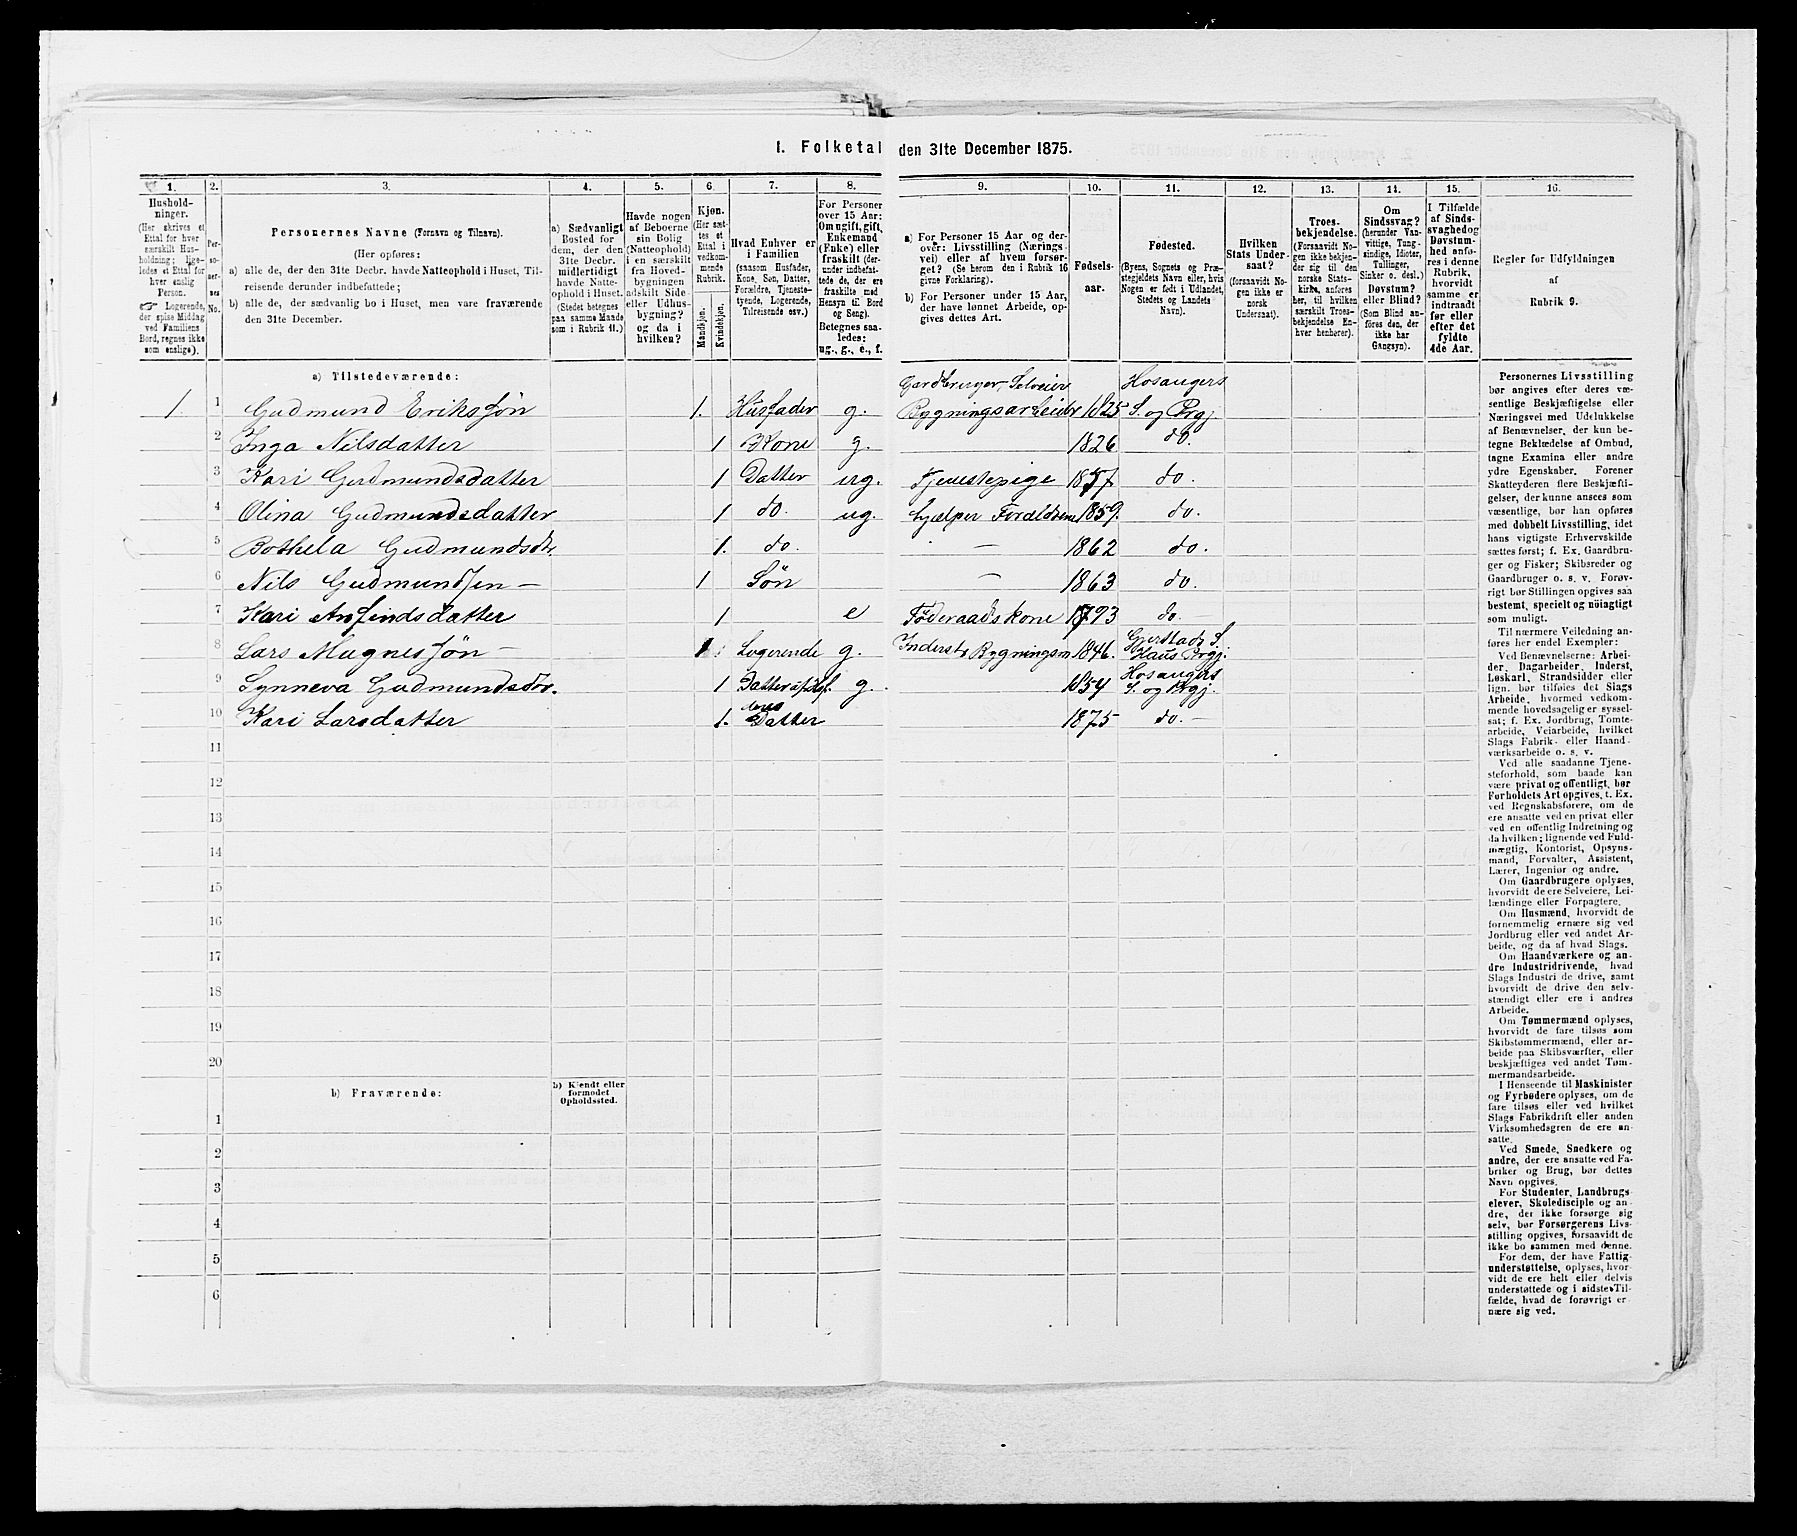 1. Folketal den 31te December 1875.
1. 2. 3. 4. 5. 6. 7. 8. 9. 10. 11. 12. 13. 14. 15. 16.
Hushold-
ninger.
(Her skrives et
Ettal for hver
særskilt Hus-
holdning; lige-
ledes et Ettal for
hver enslig
Person.
☞ Logerende,
der, spise Middag
ved Familiens
Bord, regnes ikke
som enslige).
Per-
so-
ner-
nes
No.
Personernes Navne (Fornavn og Tilnavn).
(Her opføres:
a) alle de, der den 31te Decbr. havde Natteophold i Huset, Til-
reisende derunder indbefattede;
b) alle de, der sædvanlig bo i Huset, men vare fraværende
den 31te December.
a) Sædvanligt
Bosted for
dem, der den
31te Decbr.
midlertidigt
havde Natte-
ophold i Huset.
(Stedet betegnes
paa samme Maade
som i Rubrik 11.)
Havde nogen
af Beboerne
sin Bolig
(Natteophold)
i en særskilt
fra Hoved-
bygningen
adskilt Side
eller Udhus-
bygning?
og da i
hvilken?
Kjøn.
(Her sæt-
tes et
Ettal i
vedkom-
mende
Rubrik.
Mandkjøn.
Kvindekjøn.
Hvad Enhver er
i Familien
(saasom Husfader,
Kone, Søn, Datter,
Forældre, Tjeneste-
tyende, Logerende,
Tilreisende osv.)
For Personer
over 15 Aar:
Om ugift, gift,
Enkemand
(Enke) eller
fraskilt (der-
under indbefat-
tede de, der ere
fraskilte med
Hensyn til Bord
og Seng).
Betegnes saa-
ledes:
ug., g., e., f.
a) For Personer 15 Aar og der-
over: Livsstilling (Nærings-
vei) eller af hvem forsør-
get? (Se herom den i Rubrik 16
givne Forklaring).
b) For Personer under 15 Aar,
der have lønnet Arbeide, op-
gives dettes Art.
Fødsels-
aar.
Fødested.
(Byens, Sognets og Præ-
stegjeldets Navn eller, hvis
Nogen er født i Udlandet,
Stedets og Landets
Navn).
Hvilken
Stats Under-
saat?
(forsaavidt No-
gen ikke er
norsk
Undersaat).
Troes-
bekjendelse.
(Forsaavidt No-
gen ikke bekjen-
der sig til den
norske Stats-
kirke, anføres
her, til hvilken
særskilt Troes-
bekjendelse En-
hver henhører).
Om
Sindssvag?
(herunder Van-
vittige, Tung-
sindige, Idioter,
Tullinger,
Sinker o. desl.)
Døvstum?
eller Blind?
(Som Blind an-
føres den, der
ikke har
Gangsyn).
I Tilfælde
af Sinds-
svaghed og
Døvstum-
hed anfø-
res i denne
Rubrik,
hvorvidt
samme er
indtraadt
før eller
efter det
fyldte
4de Aar.
Regler for Udfyldningen
af
Rubrik 9.
a) Tilstedeværende:
Gardbruger, Selveier Hosangers
1. 1 Gudmund Eriksøn 1. Husfader g. Bygningsarbeider 1825 S. og Prgj.
2 Inga Nilsdatter 1 Kone g. 1826 do.
3 Kari Gudmundsdatter 1 Datter ug. Tjenestepige 1857 do.
4 Olina Gudmundsdatter 1 do. ug. hjælper Forældrene 1859. do.
5 Bothela Gudmundsdtr. 1. do. — 1862 do.
6 Nils Gudmundsen — 1 Søn — 1863 do.
7 Kari Anfindsdatter 1 e Föderaadskone 1793 do.
8 Lars Magnesøn — 1 Logerende g. Inderst, Bygningsm 1846. Gjerstads S. Haus Prgj.
9 Synneva Gudmundsdtr. 1 Datter af Husf. g. 1854 Hosangers S. og Prgj.
10 Kari Larsdatter 1. deres Datter 1875 do. —
11
12
13
14
15
16
17
18
19
20
b) Fraværende:
b) Kjendt eller
formodet
Opholdssted.
1
2
3
4
5
6
Personernes Livsstilling
bør angives efter deres væ-
sentlige Beskjæftigelse eller
Næringsvei med Udelukkelse
af Benævnelser, der kun be-
tegne Beklædelse af Ombud,
tagne Examina eller andre
ydre Egenskaber. Forener
Skatteyderen flere Beskjæfti-
gelser, der kunne ansees som
væsentlige, bør han opføres
med dobbelt Livsstilling, idet
hans vigtigste Erhvervskilde
sættes først; f. Ex. Gaardbru-
ger og Fisker; Skibsreder og
Gaardbruger o. s. v. Forøv-
rigt bør Stillingen opgives saa
bestemt, specielt og nøiagtigt
som muligt.
Til nærmere Veiledning an-
føres her endel Exempler:
Ved Benævnelserne: Arbei-
der, Dagarbeider, Inderst,
Løskarl, Strandsidder eller
lign. bør tilføies det Slags
Arbeide, hvormed vedkom-
mende hovedsagelig er syssel-
sat; f. Ex. Jordbrug, Tomte-
arbeide, Veiarbeide, hvilket
Slags Fabrik- eller Haand-
værksarbeide o. s. v.
Ved alle saadanne Tjene-
steforhold, som baade kan
være privat og offentligt, bør
Forholdets Art opgives, t. Ex.
ved Regnskabsførere, om de
ere ansatte ved en privat eller
ved en offentlig Indretning og
da hvilken; lignende ved Fuld-
mægtig, Kontorist, Opsyns-
mand, Forvalter, Assistent,
Lærer, Ingeniør og andre.
Om Gaardbrugere oplyses,
hvorvidt de ere Selveiere, Lei-
lændinge eller Forpagtere.
Om Husmænd, hvorvidt de
fornemmelig ernære sig ved
Jordbrug eller ved andet Ar-
beide, og da af hvad Slags.
Om Haandværkere og an-
dre Industridrivende, hvad
Slags Industri de drive, samt
hvorvidt de drive den selv-
stændigt eller ere i andres
Arbeide.
Om Tømmermænd oplyses,
hvorvidt de fare tilsøs som
Skibstømmermænd, eller ar-
beide paa Skibsværfter, eller
beskjæftiges ved andet Tøm-
mermandsarbeide.
I Henseende til Maskinister
og Fyrbødere oplyses, om de
fare tilsøs eller ved hvilket
Slags Fabrikdrift eller anden
Virksomhedsgren de ere an-
satte.
Ved Smede, Snedkere og
andre, der ere ansatte ved Fa-
briker og Brug, bør dettes
Navn opgives.
For Studenter, Landbrugs-
elever, Skoledisciple og an-
dre, der ikke forsørge sig
selv, bør Forsørgerens Livs-
stilling opgives, forsaavidt de
ikke bo sammen med denne.
For dem, der have Fattig-
understøttelse, oplyses, hvor-
vidt de ere helt eller delvis
understøttede og i sidste Til-
fælde, hvad de forøvrigt er-
nære sig ved.